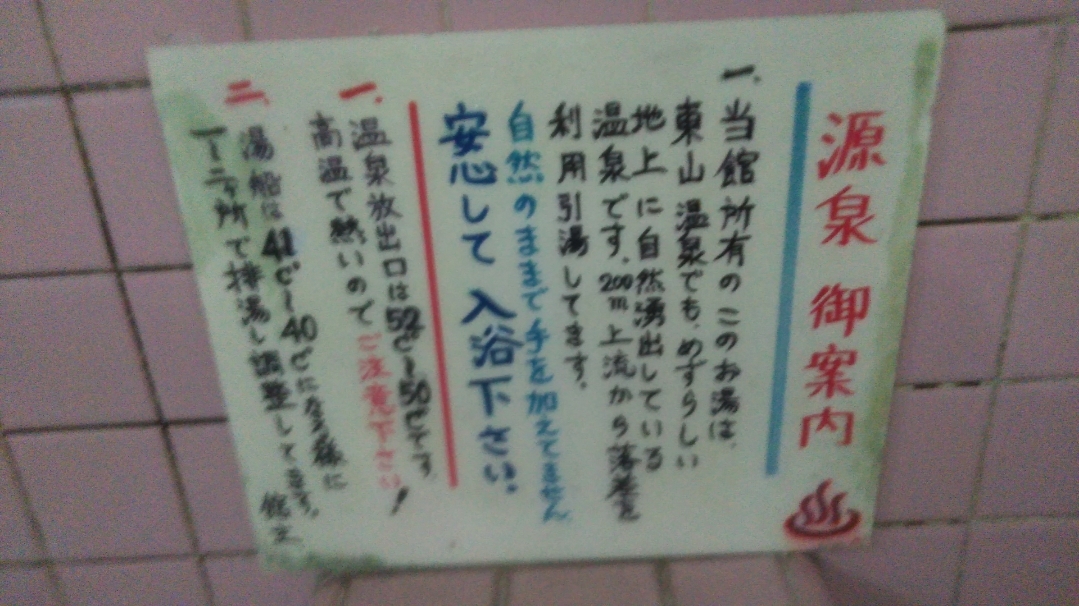 源泉 御案内
一、当館所有のこのお湯は、
東山温泉でも、めずらしい
地上に自然湧出している
温泉です。200m上流から落差を
利用引湯してます。
自然のままで手を加えてません
安心して入浴下さい。
一、温泉放出口は52℃〜50℃です。
高温で熱いのでご注意下さい!
二、湯船は41℃〜40℃になる様に
一〜二ヶ所で排湯し調整してます。
館主